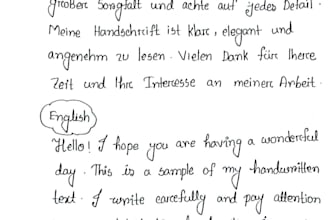 großer Songfalt und achte auf jedes Detail.
Meine Handschrift ist klar, elegant und
angenehm zu lesen. Vielen Dank für Ihere
Zeit und Ihr Interesse an meiner Arbeit.
English
Hello! I hope you are having a wonderful
day. This is a sample of my handwritten
text. I write carefully and pay attention